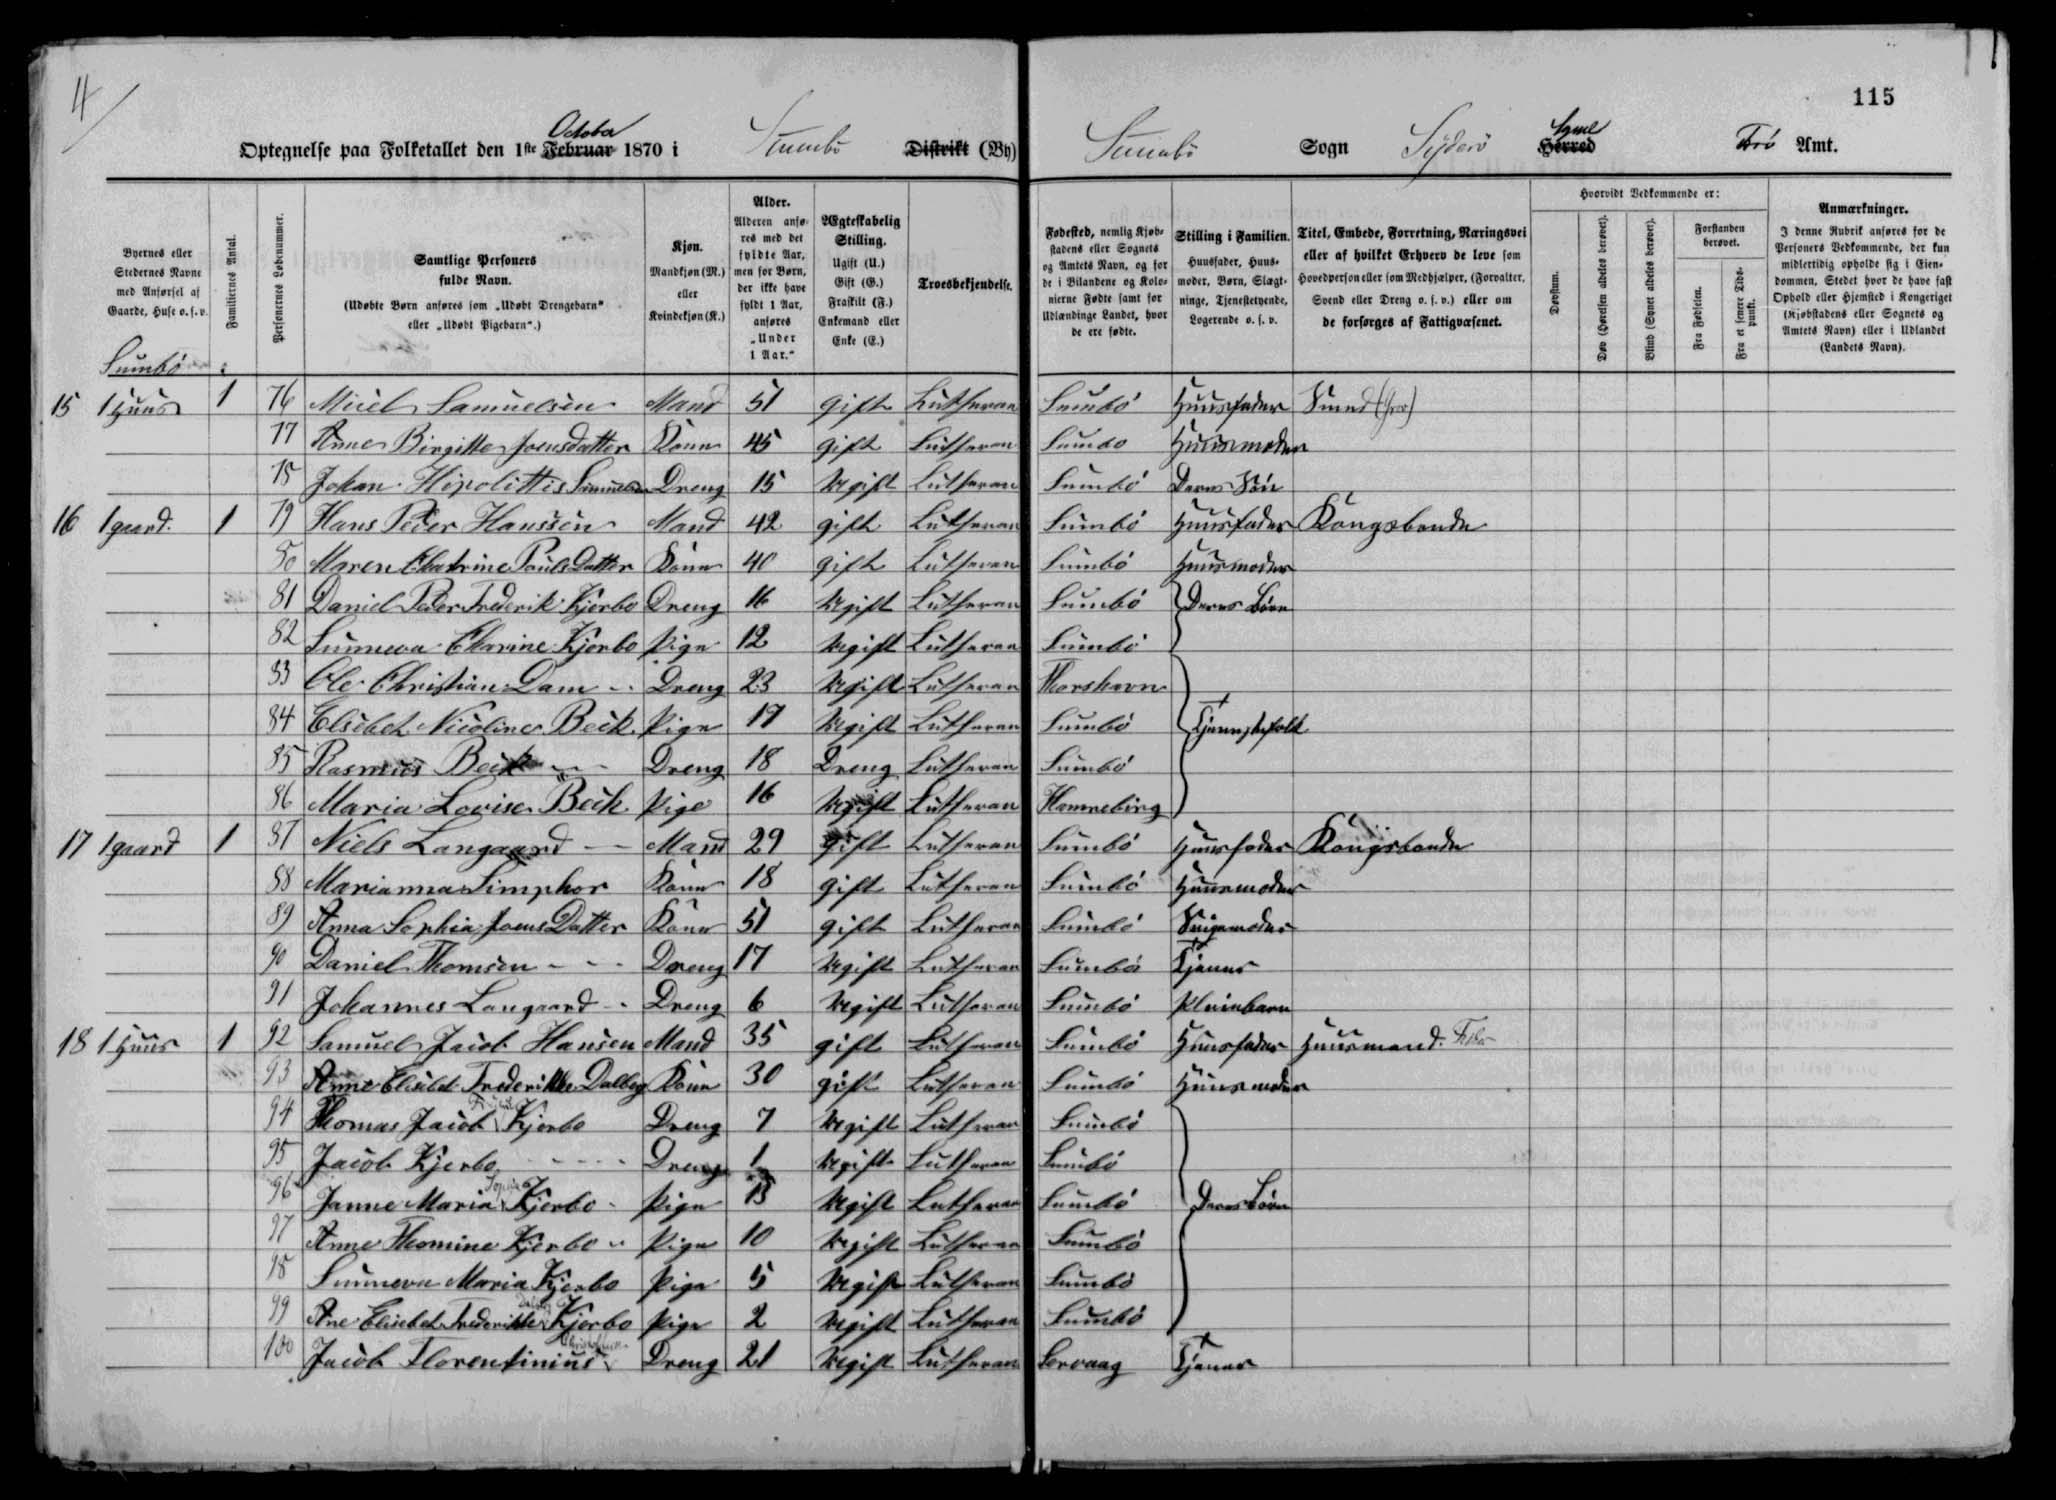 4
115
Optegnelse paa Folketallet den 1ste Februar October 1870 i Sumbö Distrikt (By) Sumbö Sogn Syderö Herred Syssel Frö Amt.
Byernes eller Stedernes Navne med Anførsel af Gaarde, Huse o. s. v.
Familiernes Antal.
Personernes Løbenummer.
Samtlige Personers fulde Navn.
(Udøbte Børn anføres som „Udøbt Drengebarn“ eller „Udøbt Pigebarn“.)
Kjøn. Mandkjøn (M.) eller Kvindekjøn (K.)
Alder. Alderen anføres med det fyldte Aar, men for Børn, der ikke have fyldt 1 Aar, anføres „Under 1 Aar.“
Ægteskabelig Stilling. Ugift (U.) Gift (G.) Fraskilt (F.) Enkemand eller Enke (E.)
Troesbekjendelse.
Fødested, nemlig Kjøbstadens eller Sognets og Amtets Navn, og for de i Bilandene og Kolonierne Fødte samt for Udlændinge Landet, hvor de ere fødte.
Stilling i Familien. Huusfader, Huusmoder, Børn, Slægtninge, Tjenestetyende, Logerende o. s. v.
Titel, Embede, Forretning, Næringsvei eller af hvilket Erhverv de leve som Hovedperson eller som Medhjælper, (Forvalter, Svend eller Dreng o. s. v.) eller om de forsørges af Fattigvæsenet.
Hvorvidt Vedkommende er:
Døvstum.
Døv (Hørelsen aldeles berøvet).
Blind (Synet aldeles berøvet).
Forstanden berøvet.
Fra Fødselen.
Fra et senere Tidspunkt.
Anmærkninger. I denne Rubrik anføres for de Personers Vedkommende, der kun midlertidig opholde sig i Eiendommen, Stedet hvor de have fast Ophold eller Hjemsted i Kongeriget (Kjøbstadens eller Sognets og Amtets Navn) eller i Udlandet (Landets Navn).
Sumbö
15 1 Huus 1 76 Miċel Samuelsen Mand 51 gift Lutheran Sumbö Huusfader Smed
77 Anne Birgitte Joensdatter Köne 45 gift Lutheran Sumbö Huusmoder
78 Johan Hipolittis Samuelsen Dreng 15 Ugift Lutheran Sumbö Deres Sön
16 1 gaard. 1 79 Hans Peder Hanssen Mand 42 gift Lutheran Sumbö Huusfader Kongsbonde
80 Maren Chatrine Pouls Datter Köne 40 gift Lutheran Sumbö Huusmoder
81 Daniel Peder Frederik Kjerbo Dreng 16 Ugift Lutheran Sumbö Deres Börn
82 Sunneva Chatrine Kjerbo Pige 12 Ugift Lutheran Sumbö
83 Ole Christian Dam Dreng 23 Ugift Lutheran Thorshavn
84 Elsebet Nicoline Beck Pige 19 Ugift Lutheran Sumbö Tjenestefolk
85 Rasmus Beck Dreng 18 Dreng Lutheran Sumbö
86 Maria Lovise Beck Pige 16 Ugift Lutheran Hamrebirg
17 1 gaard 1 87 Niels Langaard Mand 29 gift Lutheran Sumbö Huusfader Kongsbonde
88 Marianna Simphor Köne 18 gift Lutheran Sumbö Huusmoder
89 Anna Sophia Joens Datter Köne 51 gift Lutheran Sumbö
90 Daniel Thomsen Dreng 17 Ugift Lutheran Sumbö Tjener
91 Johannes Langaard Dreng 6 Ugift Lutheran Sumbö Pleiebarn
18 1 Huus 1 92 Samuel Jacob Hansen Mand 35 gift Lutheran Sumbö Huusfader Huusmand. Fisker
93 Anne Elsebet Frederikke Dalberg Köne 30 gift Lutheran Sumbö Huusmoder
94 Thomas Jacob Kjerbo Dreng 7 Ugift Lutheran Sumbö
95 Jacob Kjerbo Dreng 1 Ugift Lutheran Sumbö
96 Janne Maria Sophia Kjerbo Pige 13 Ugift Lutheran Sumbö Deres Börn
97 Anne Thomine Kjerbo Pige 10 Ugift Lutheran Sumbö
98 Sunneva Maria Kjerbo Pige 5 Ugift Lutheran Sumbö
99 Ane Elsebet Frederikke Dalberg Kjerbo Pige 2 Ugift Lutheran Sumbö
100 Jacob Florentinius Dreng 21 Ugift Lutheran Sorvaag Tjener